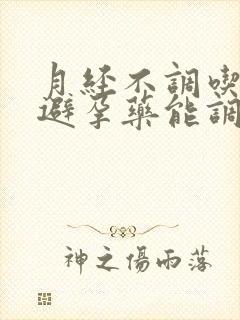 月経不調喫
避孕藥能調
神之傷雨落